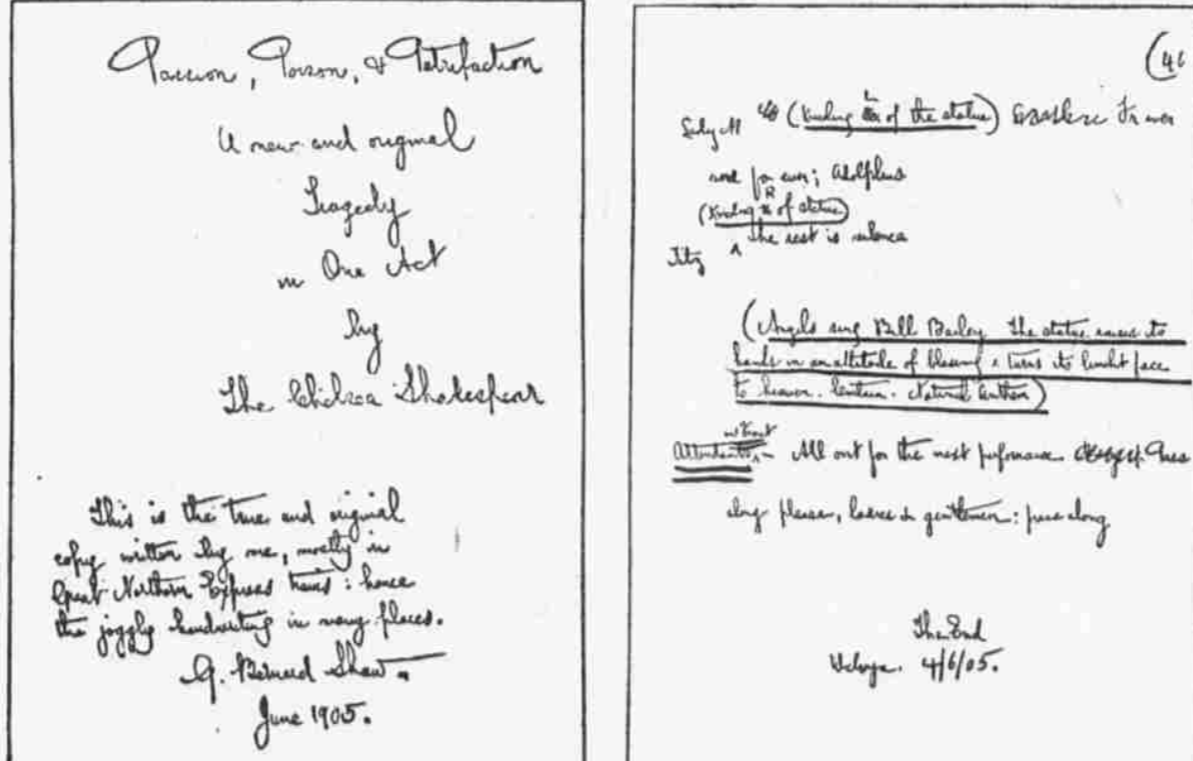 Passion, Poison, & Petrifaction
A new and original
Tragedy
in One Act
by
The Chelsea Shakespear
This is the true and original
copy written by me, mostly in
Great Northern Express trains: hence
the joggly handwriting in many places.
G. Bernard Shaw.
June 1905.
(46
Lady M (Kneeling L of the statue) For ever
and for ever; Adolphus
(Kneeling R of statue)
Fitz The rest is silence
(Angels sing Bill Bailey The statue raises its
hands in an attitude of blessing & turns its limelit face
to heaven. Curtain. National Anthem)
without
Attendants - All out for the next performance Pass
along please, ladies & gentlemen: pass along
The End
4/6/05.